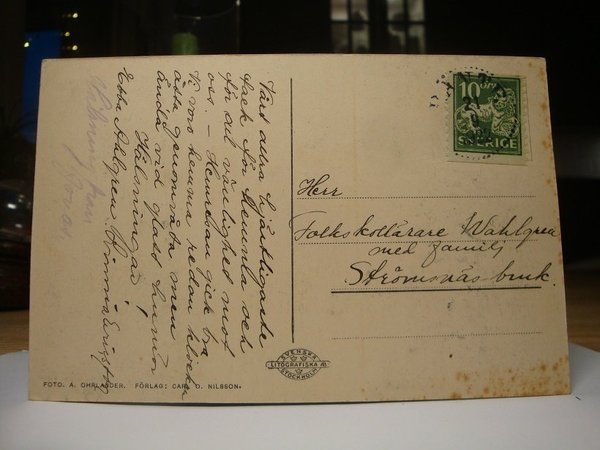 Vårt allra hjärtligaste
tack för Gemmla och
för all vänlighet mot
oss. - Hemresan gick bra
Vi voro hemma redan klockan
åtta genomvåta men
ändå vid glatt humör
Hälsningar
Ebba Ahlgren
10 ÖRE
SVERIGE
Herr
Folkskollärare Wahlgren
med familj
Strömsnäs bruk.
SVENSKA
LITOGRAFISKA AB.
STOCKHOLM
FOTO. A. OHRLANDER. FÖRLAG: CARL O. NILSSON.